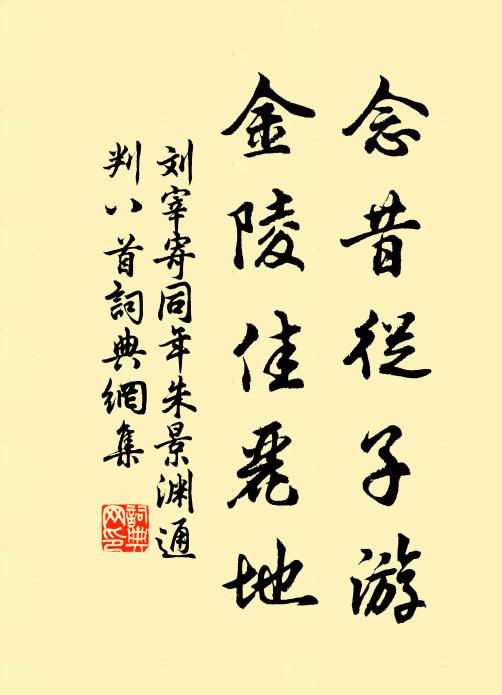 念昔從子游
金陵佳麗地
刘宰寄同年朱景渊通
判八首詞典網集
詞典
网印